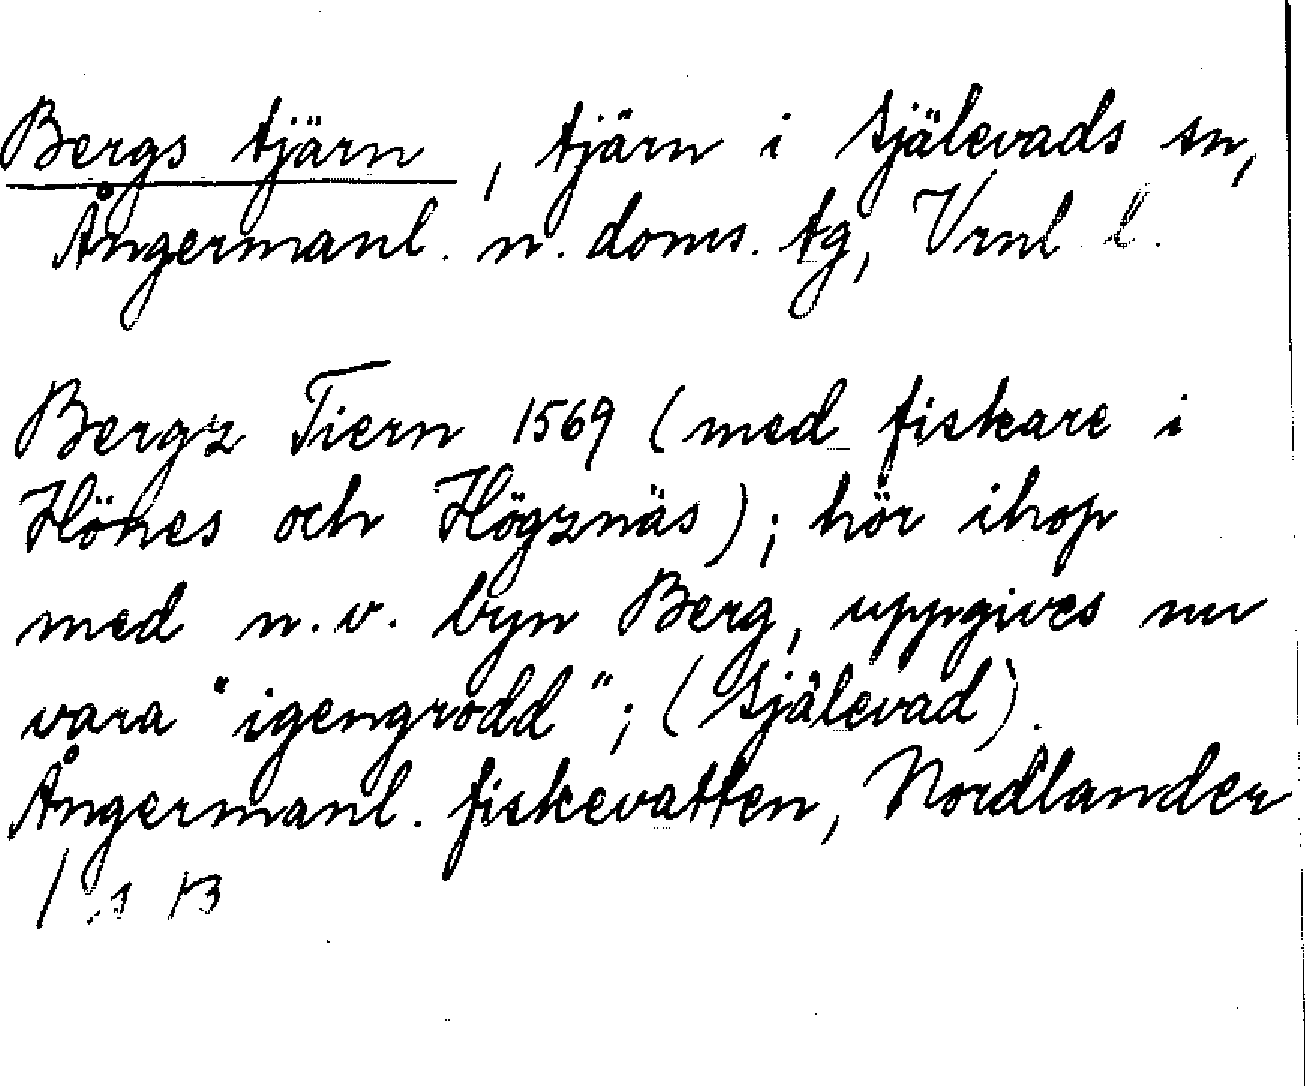 Bergs tjärn, tjärn i Själevads sn,
Ångermanl. n. doms. tg, Vrnl l.
Bergz Tiern 1569 (med fiskare i
Hönes och Högznäs); hör ihop
med n.v. byn Berg, uppgives nu
vara "igengrodd"; (Själevad).
Ångermanl. fiskevatten, Nordlander
/ s 13